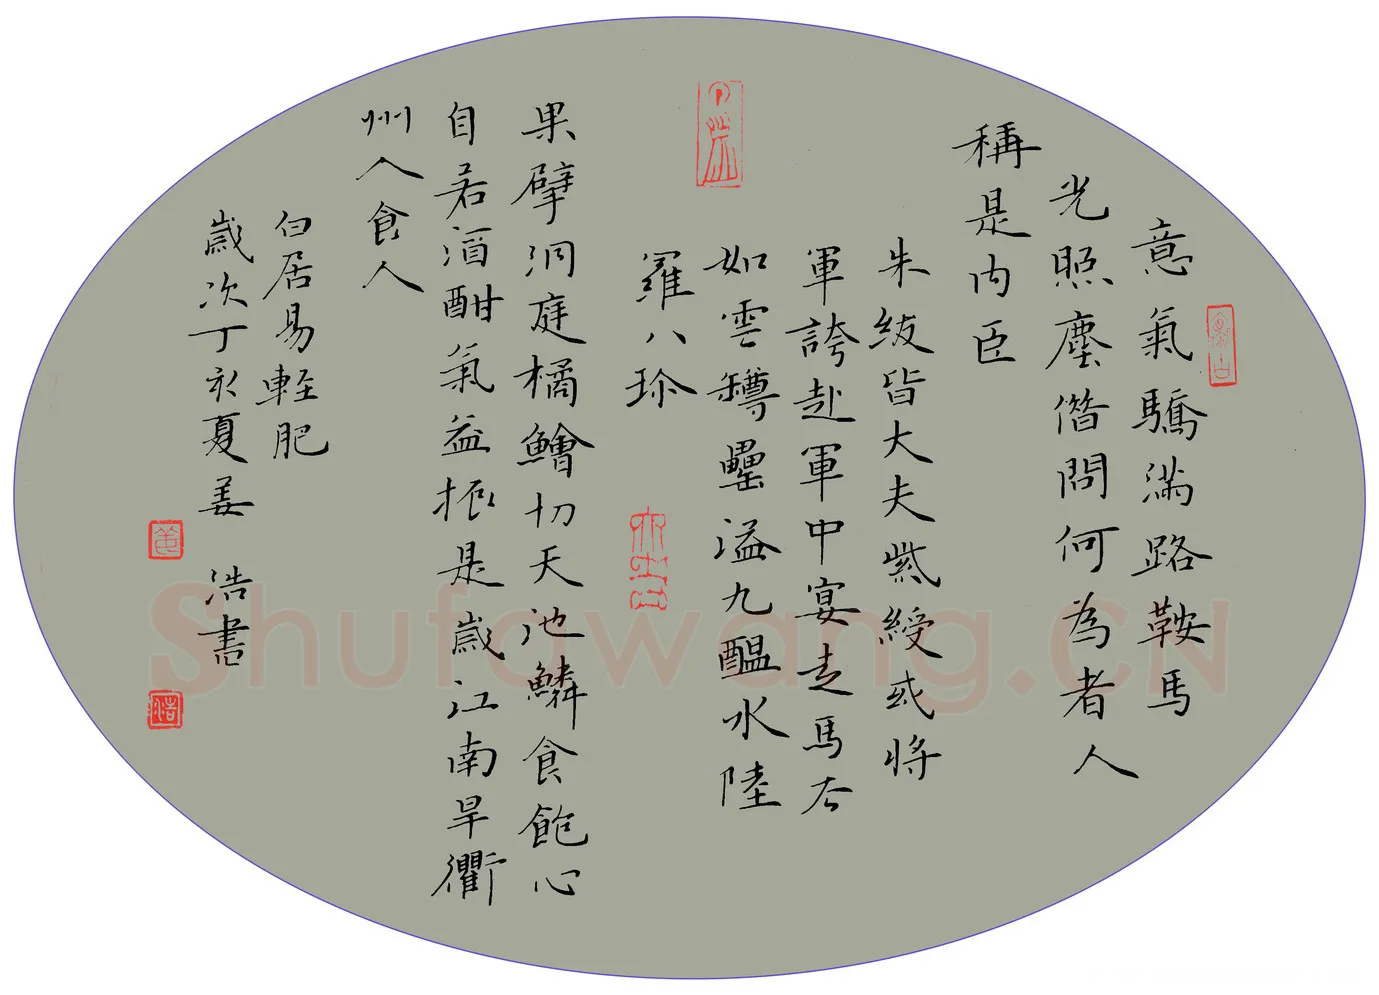 意氣驕滿路鞍馬
光照塵借問何為者人
稱是内臣
朱紱皆大夫紫綬或將
軍誇赴軍中宴走馬去
如雲罇罍溢九醞水陸
羅八珍
果擘洞庭橘鱠切天池鱗食飽心
自若酒酣氣益振是歲江南旱衢
州人食人
白居易輕肥
歲次丁亥夏姜浩書
Shufawang.CN